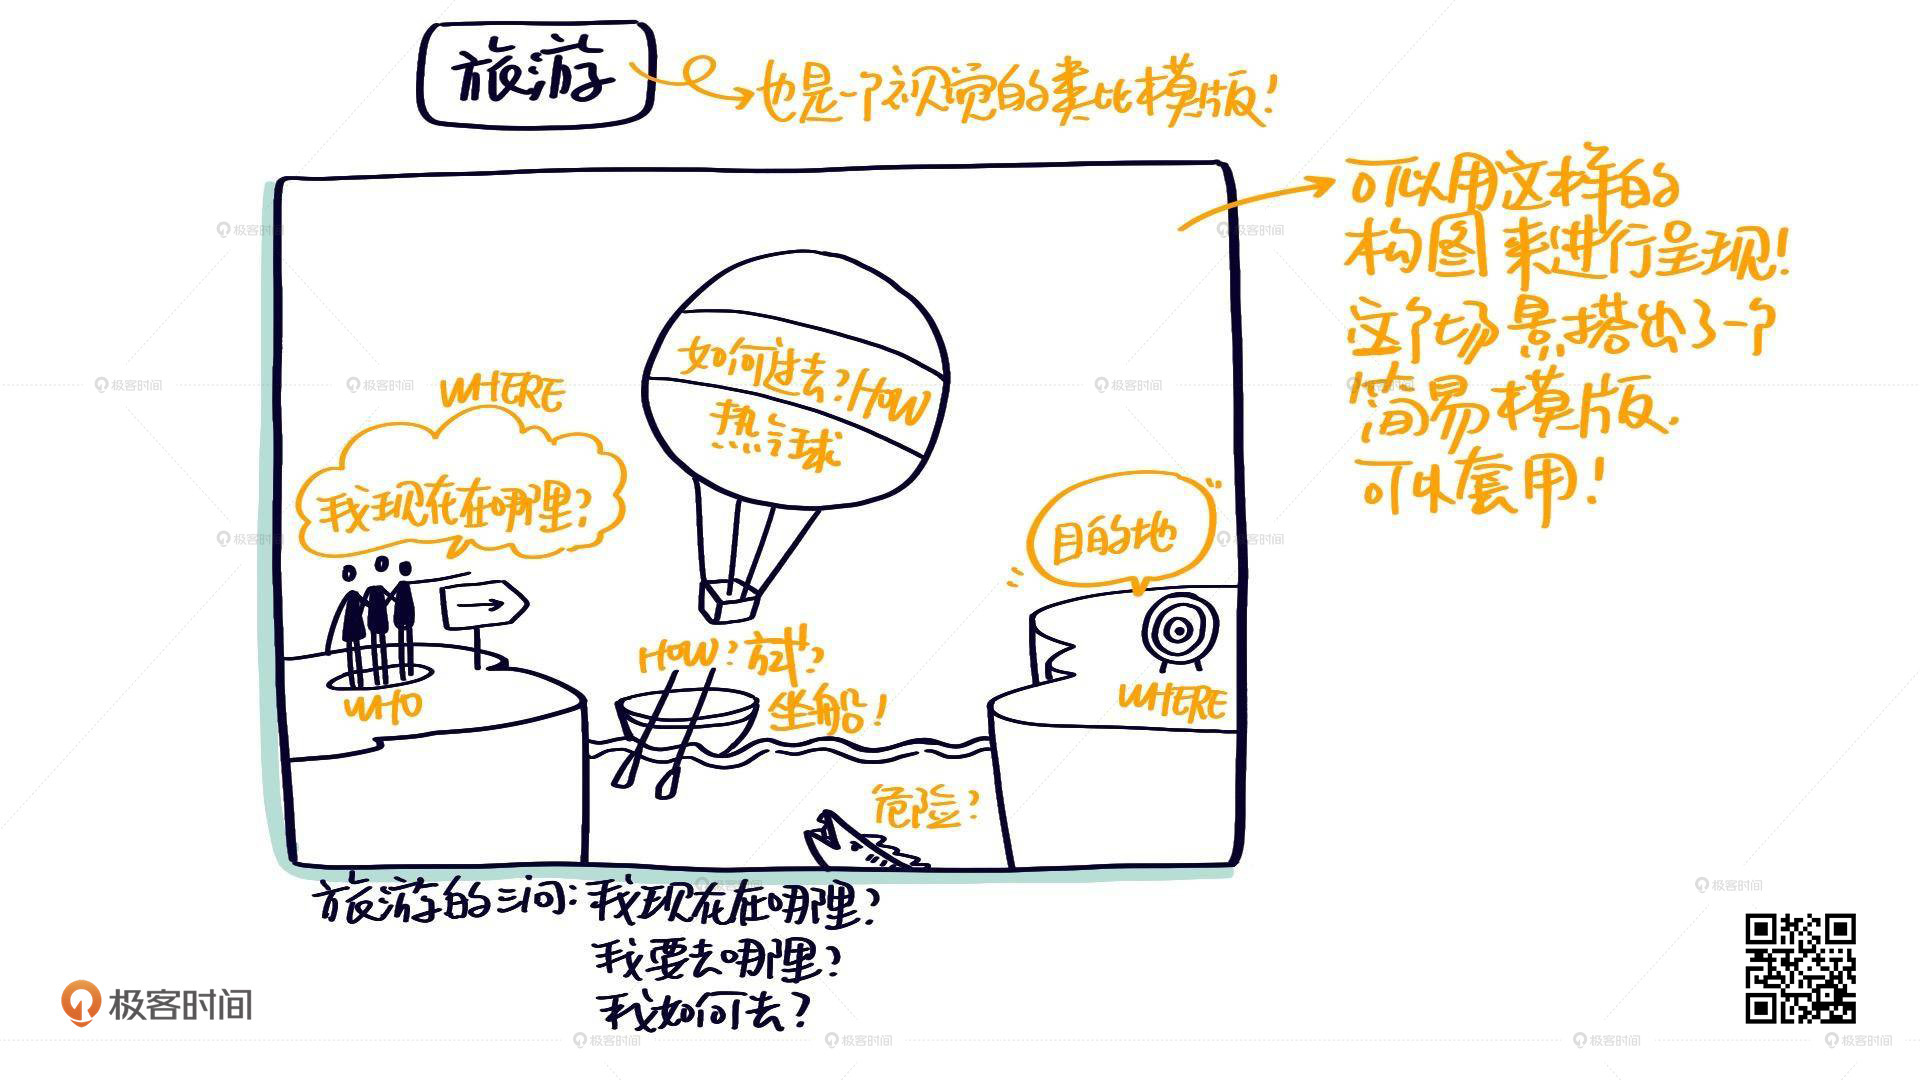 旅游
也是一个视觉的类比模版!
可以用这样的
构图来进行呈现!
这个场景搭出了一个
简易模版.
可以套用!
WHERE
我现在在哪里?
如何过去?/HOW
热气球
目的地
WHO
HOW?
坐船!
WHERE
危险?
旅游的三问:我现在在哪里?
我要去哪里?
我如何去?
极客时间